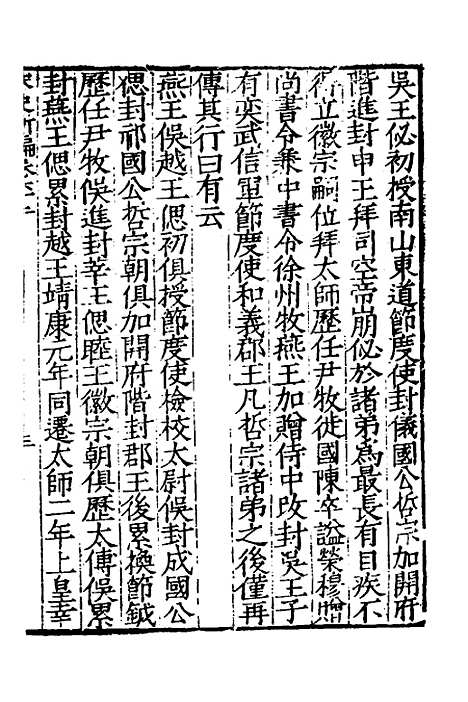 吳王佖初授南山東道節度使封儀國公哲宗加開府
階進封申王拜司空帝崩佖於諸弟為最長有目疾不
得立徽宗嗣位拜太師歷任尹牧徙國陳卒謚榮穆贈
尚書令兼中書令徐州牧燕王加贈侍中改封吳王子
有奕武信軍節度使和義郡王凡哲宗諸弟之後僅再
傳其行曰有云
燕王俁越王偲初俱授節度使檢校太尉俁封成國公
偲封祁國公哲宗朝俱加開府階封郡王後累換節鉞
歷任尹牧俁進封莘王偲睦王徽宗朝俱歷太傅俁累
封燕王偲累封越王靖康元年同遷太師二年上皇幸